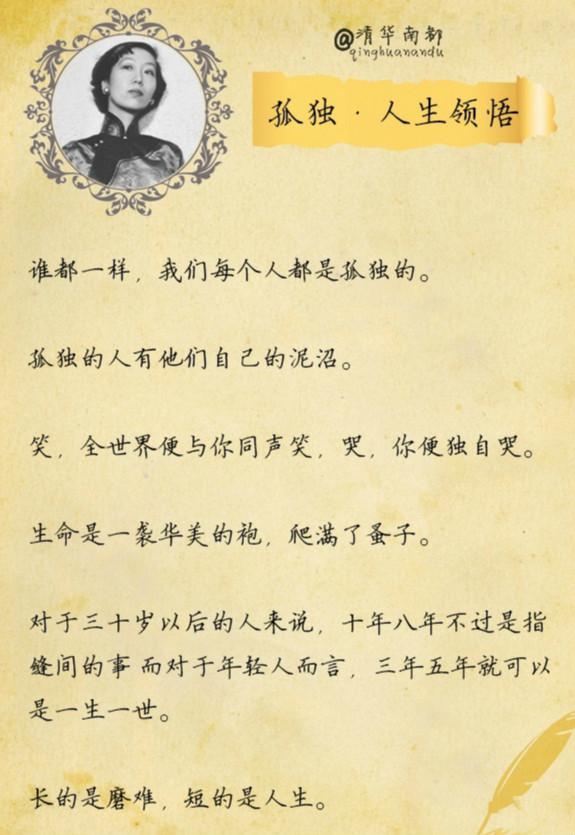 @清华南都
qinghuanandu
孤独·人生领悟
谁都一样，我们每个人都是孤独的。
孤独的人有他们自己的泥沼。
笑，全世界便与你同声笑，哭，你便独自哭。
生命是一袭华美的袍，爬满了蚤子。
对于三十岁以后的人来说，十年八年不过是指
缝间的事 而对于年轻人而言，三年五年就可以
是一生一世。
长的是磨难，短的是人生。